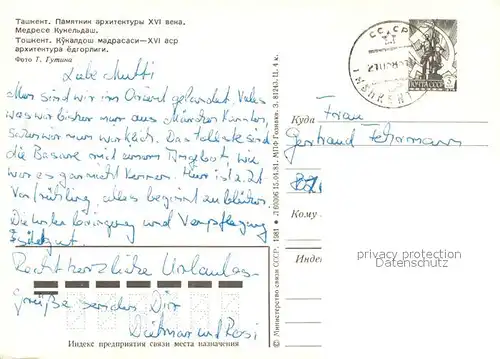 Ташкент. Памятник архитектуры XVI века.
Медресе Кукельдаш.
Тошкент. Кўкалдош мадрасаси—XVI аср
архитектура ёдгорлиги.
Фото Т. Гутина
Liebe Mutti
Nun sind wir im Orient gelandet. Vieles
was wir bisher nur aus Märchen kannten
sahen wir nun wirklich. Das tollste sind
die Basare mit einem Angebot, wie
wir es gar nicht kennen. Hier ist z. Zt
Vorfrühling, alles beginnt zu blühen.
Die Unterbringung und Verpflegung
ist sehr gut.
Recht herzliche Urlaubs-
grüße senden Dir
Dietmar und Rosi
Индекс предприятия связи места назначения
© Министерство связи СССР. 1981 Л 60206 15.04.81. МПФ Гознака. З. 81243. Ц. 4 к.
СССР
Куда
Frau
Gertraud
Кому
Индекс
privacy protection
Datenschutz